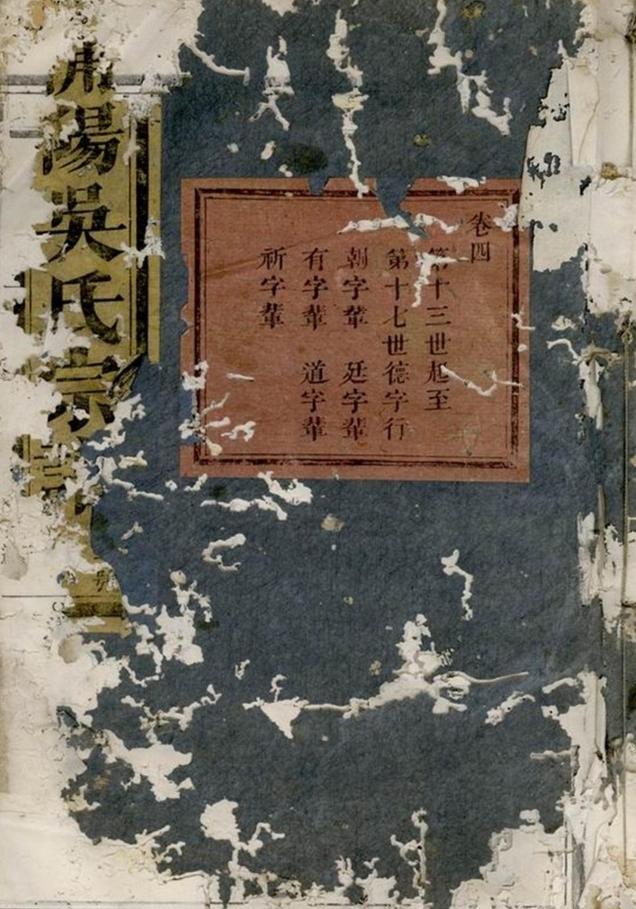 陽吳氏宗
卷四
第十三世起至
第十七世德字行
朝字輩 廷字輩
有字輩 道字輩
祈字輩